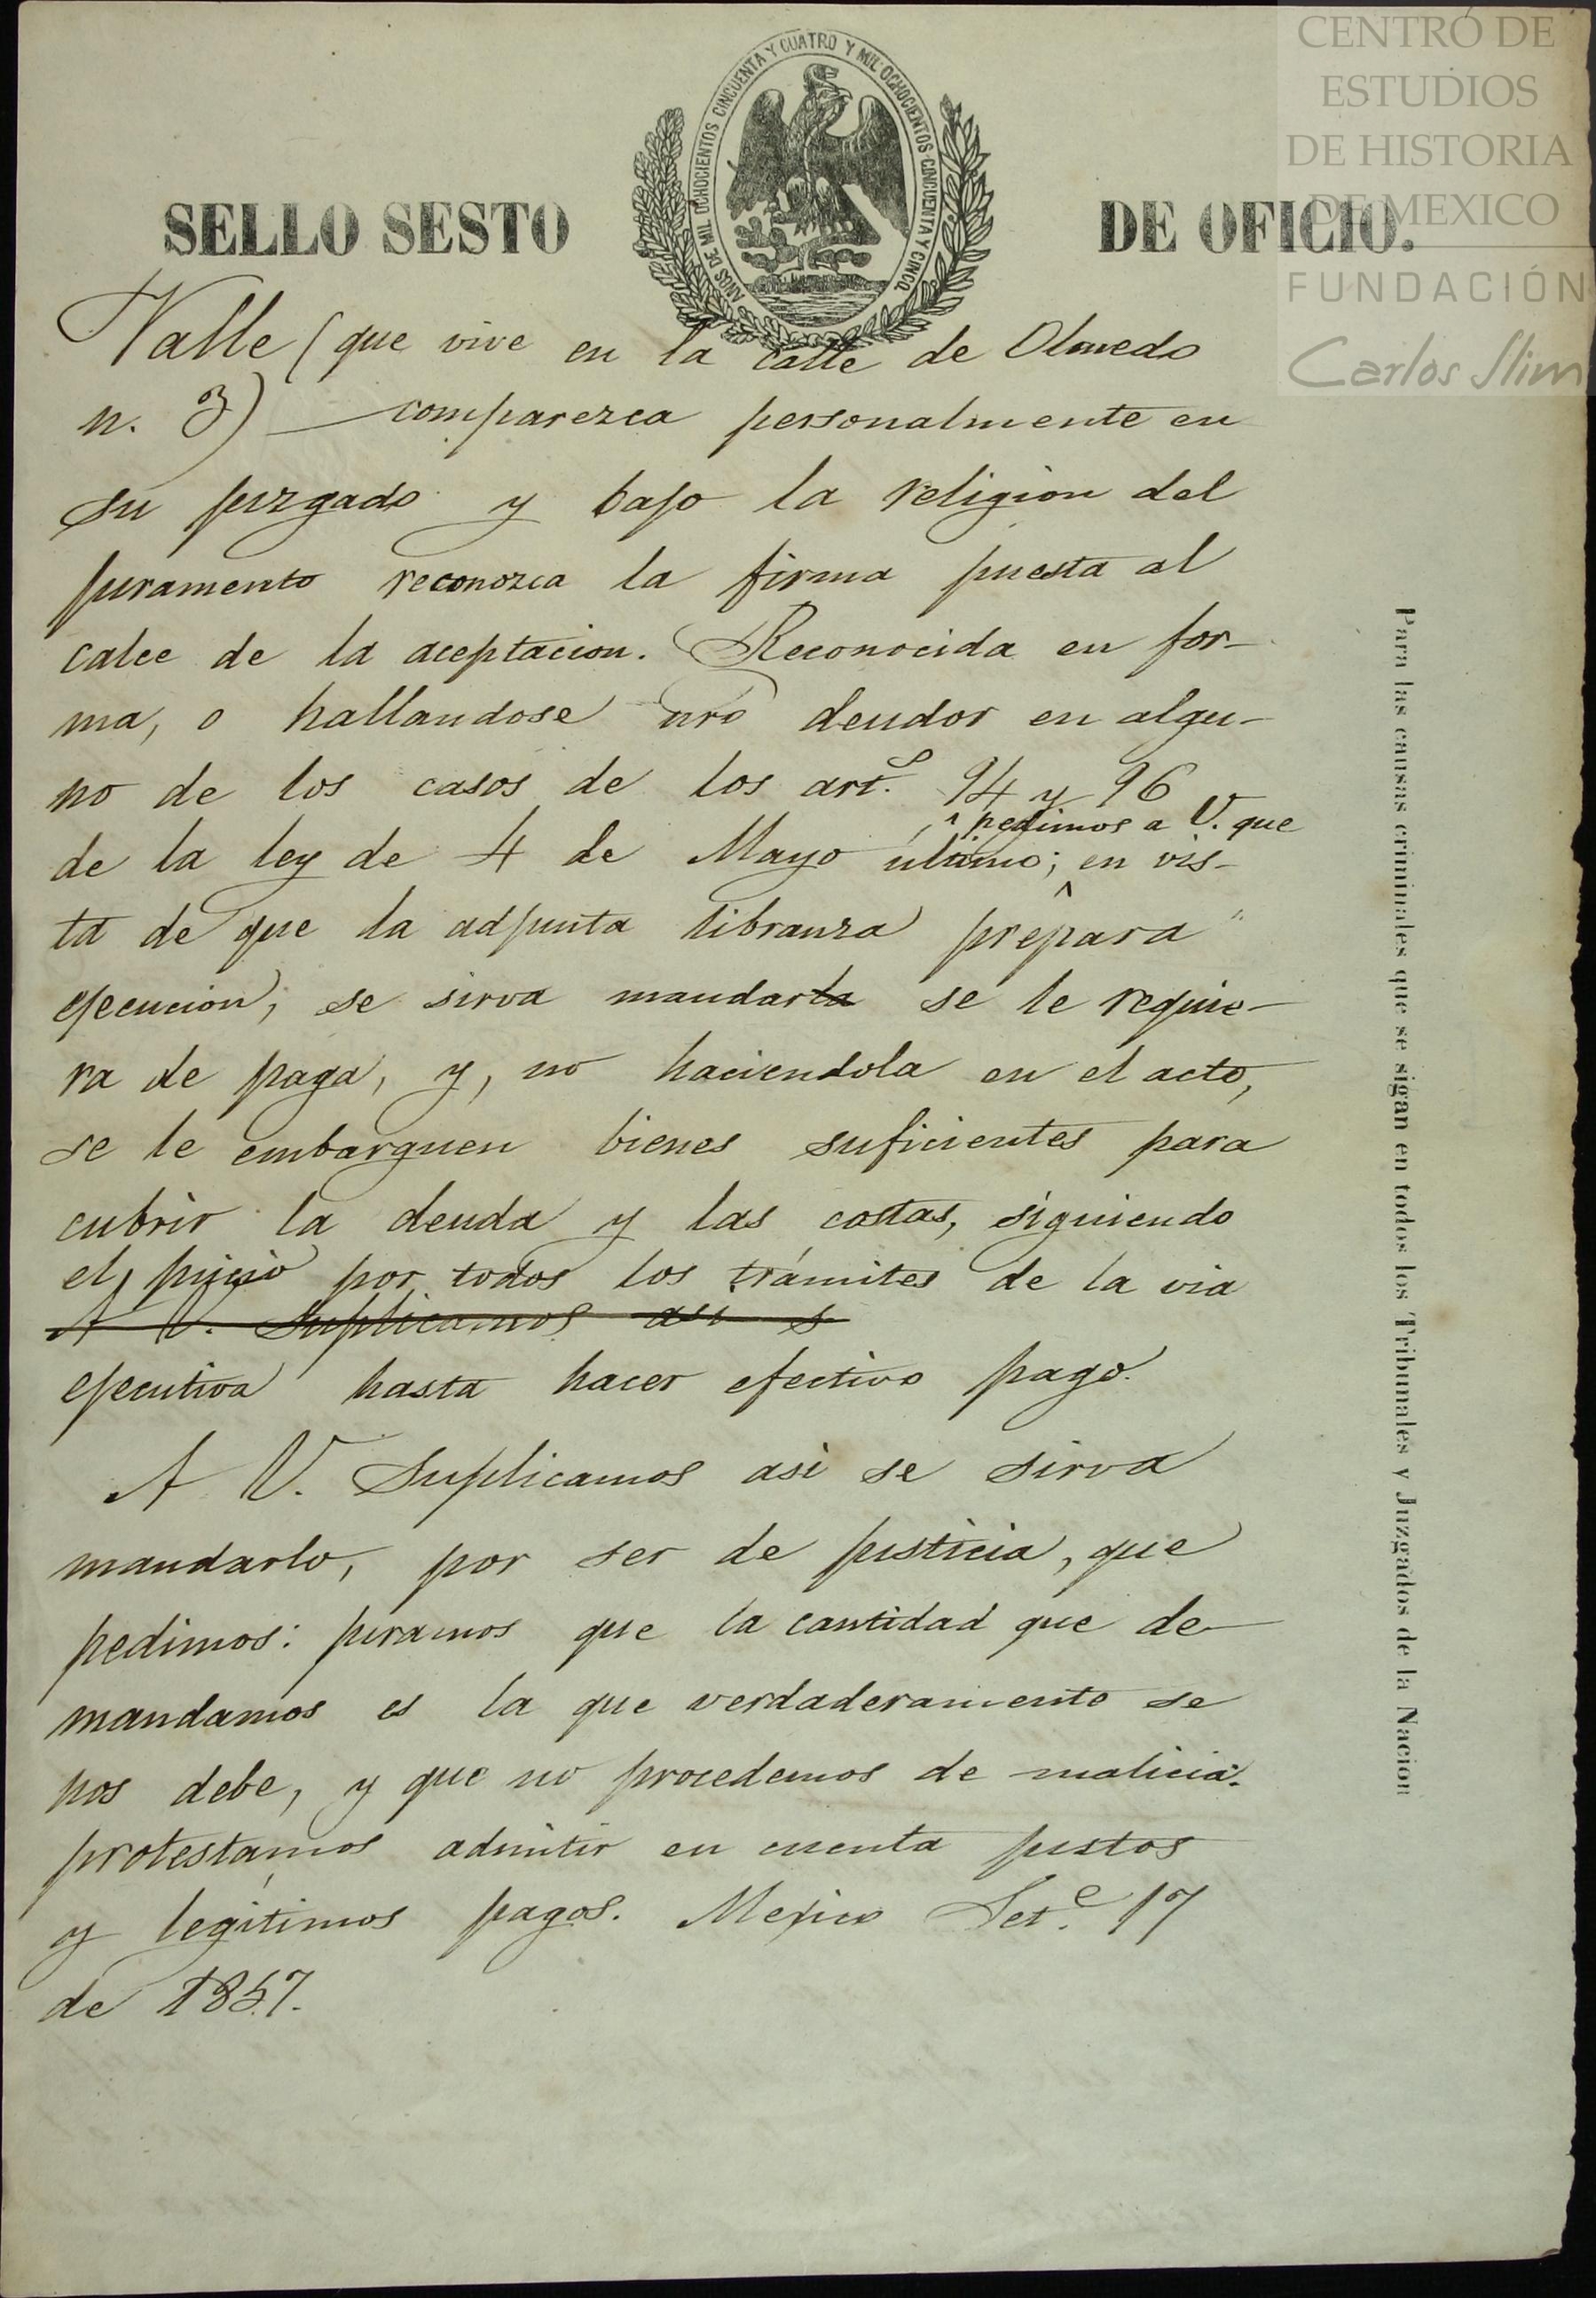 CENTRO DE
ESTUDIOS
DE HISTORIA
DE MEXICO
FUNDACIÓN
Carlos Slim
AÑOS DE MIL OCHOCIENTOS CINCUENTA Y CUATRO Y MIL OCHOCIENTOS CINCUENTA Y CINCO.
SELLO SESTO DE OFICIO.
Valle (que vive en la calle de Olmedo
n. 3) comparezca personalmente en
su juzgado y bajo la religion del
juramento reconozca la firma puesta al
calce de la aceptacion. Reconocida en for-
ma, o hallandose nro deudor en algu-
no de los casos de los art.s 94 y 96
pedimos a V. que
de la ley de 4 de Mayo último; en vis-
ta de que la adjunta libranza prepara
ejecucion, se sirva mandarla se le requie-
ra de paga, y, no haciendola en el acto,
se le embarguen bienes suficientes para
cubrir la deuda y las costas, siguiendo
el juicio por todos los trámites de la via
A V. Suplicamos asi s
ejecutiva hasta hacer efectivo pago.
A V. Suplicamos asi se sirva
mandarlo, por ser de justicia, que
pedimos: juramos que la cantidad que de-
mandamos es la que verdaderamente se
nos debe, y que no procedemos de malicia.
protestamos admitir en cuenta justos
y legítimos pagos. Mejico Set.e 17
de 1857.
Para las causas criminales que se sigan en todos los Tribunales y Juzgados de la Nacion